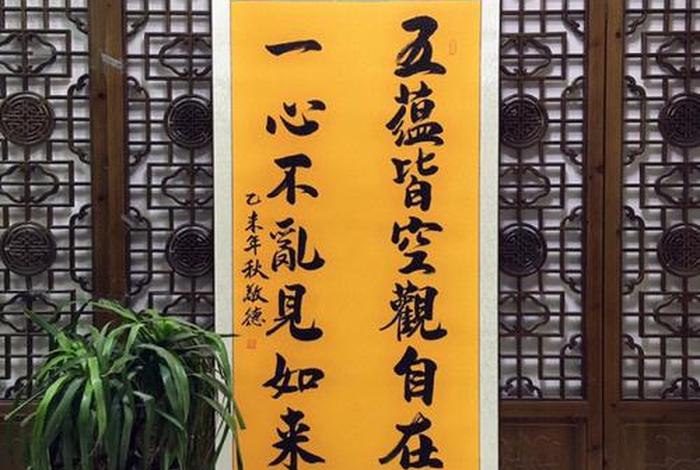 五蘊皆空觀自在
一心不亂見如来
乙未年秋敬德